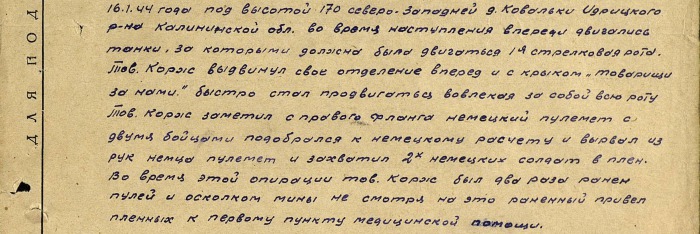 16.1.44 года под высотой 170 северо-западней д. Ковальки Идрицкого
р-на Калининской обл. во время наступления впереди двигались
танки, за которыми должна была двигаться 1я стрелковая рота.
Тов. Корж выдвинул свое отделение вперед и с криком „товарищи
за нами." быстро стал продвигаться вовлекая за собой всю роту
Тов. Корж заметил с правого фланга немецкий пулемет с
двумя бойцами подобрался к немецкому расчету и вырвал из
рук немца пулемет и захватил 2х немецких солдат в плен.
Во время этой операции тов. Корж был два раза ранен
пулей и осколком мины не смотря на это раненный привел
пленных к первому пункту медицинской помощи.
ДЛЯ ПОД